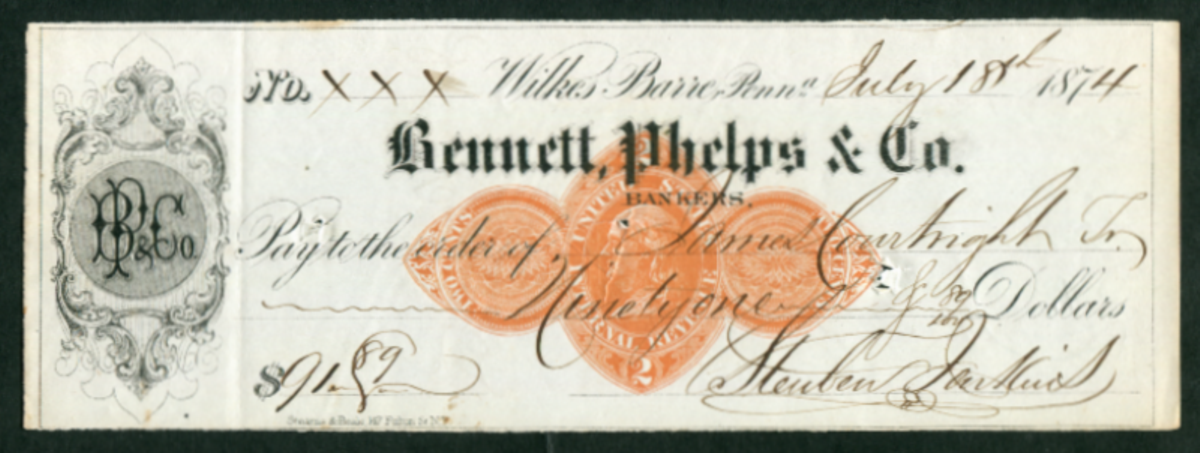 No. X X X Wilkes-Barre, Penna. July 18th 1874
Bennett, Phelps & Co.
BANKERS,
BP&Co.
Pay to the order of James Courtright Tr.
Ninety one & 89/100 Dollars
UNITED STATES
INTERNAL REVENUE
2
$91.89
Steuben Jenkins